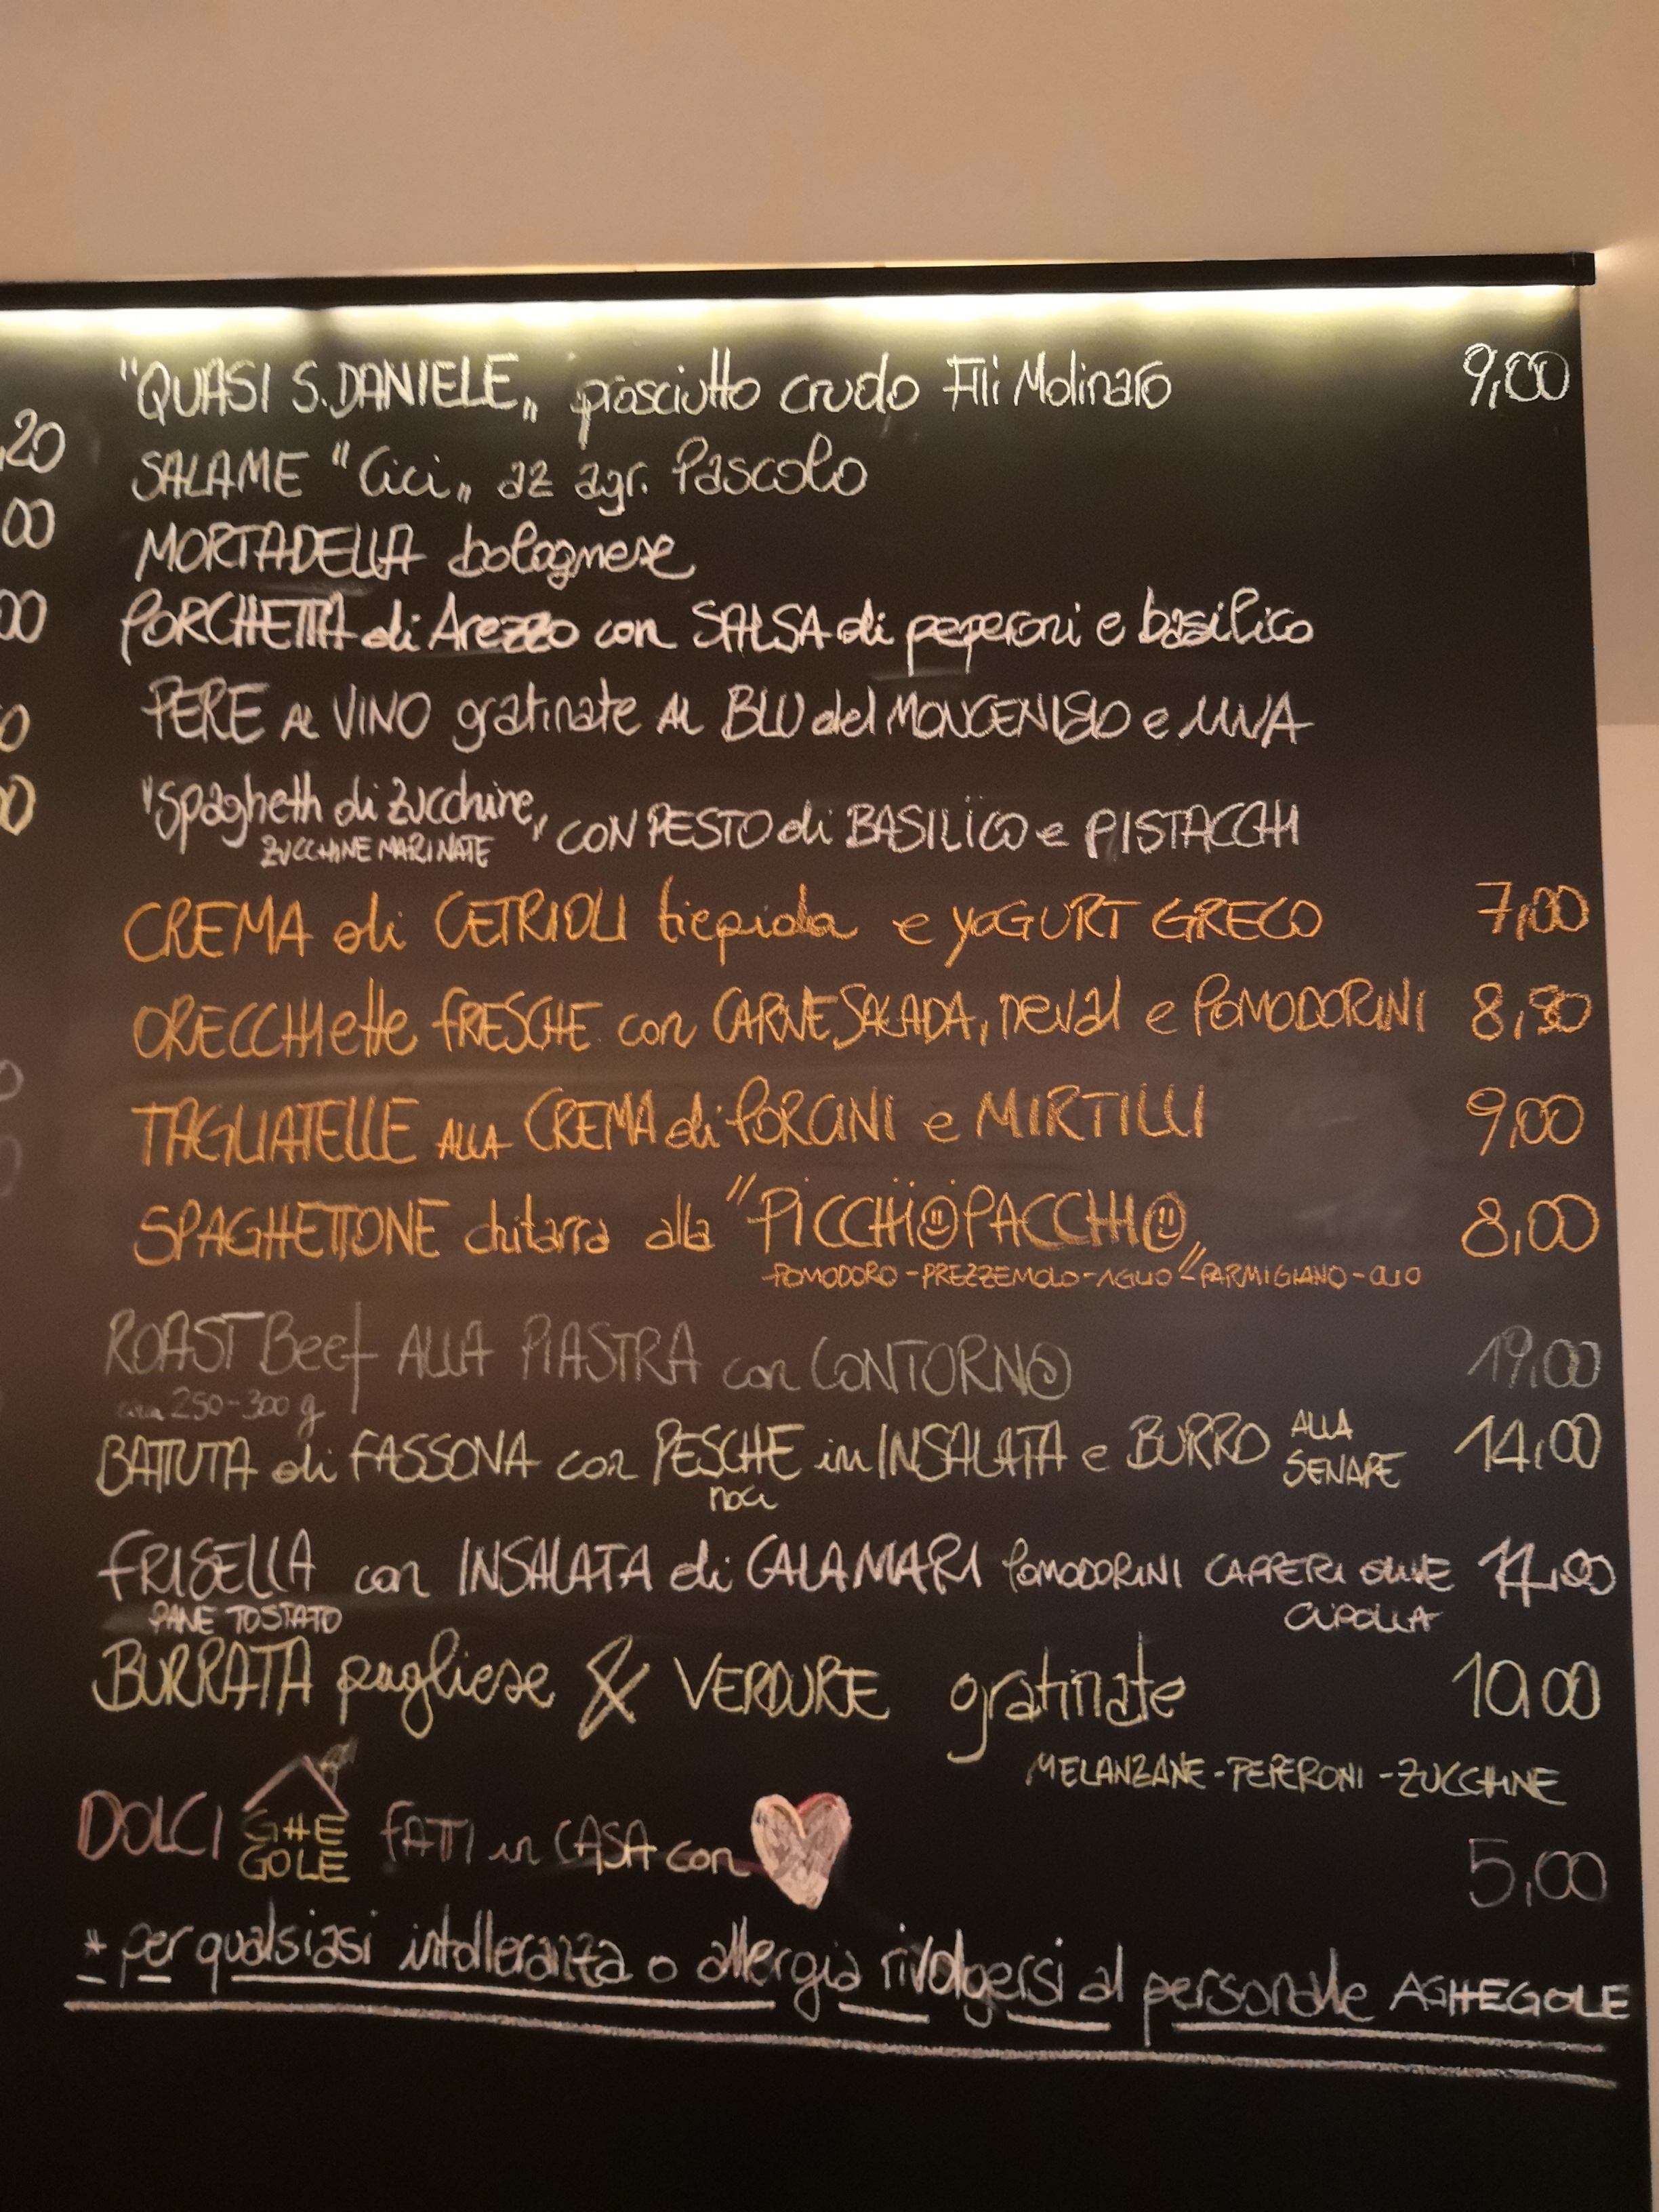 "QUASI S. DANIELE" prosciutto crudo F.lli Molinaro 9,00
SALAME "Cici" az agr. Pascolo
MORTADELLA bolognese
PORCHETTA di Arezzo con SALSA di peperoni e basilico
PERE AL VINO gratinate AL BLU del MONCENISIO e UVA
"Spaghetti di zucchine" CON PESTO di BASILICO e PISTACCHI
ZUCCHINE MARINATE
CREMA di CETRIOLI tiepida e YOGURT GRECO 7,00
ORECCHIette FRESCHE con CARNE SALADA, nerval e POMODORINI 8,50
TAGLIATELLE ALLA CREMA di PORCINI e MIRTILLI 9,00
SPAGHETTONE chitarra alla "PICCHIOPACCHIO" 8,00
POMODORO - PREZZEMOLO - AGLIO - PARMIGIANO - OLIO
ROAST Beef ALLA PIASTRA con CONTORNO 19,00
circa 250-300 g
BATTUTA di FASSONA con PESCHE in INSALATA e BURRO ALLA SENAPE 14,00
noci
FRISELLA con INSALATA di CALAMARI POMODORINI CAPPERI OLIVE
PANE TOSTATO CIPOLLA
BURRATA pugliese & VERDURE gratinate 10,00
MELANZANE - PEPERONI - ZUCCHINE
DOLCI GHE GOLE FATTI in CASA con 5,00
* per qualsiasi intolleranza o allergia rivolgersi al personale AGHEGOLE